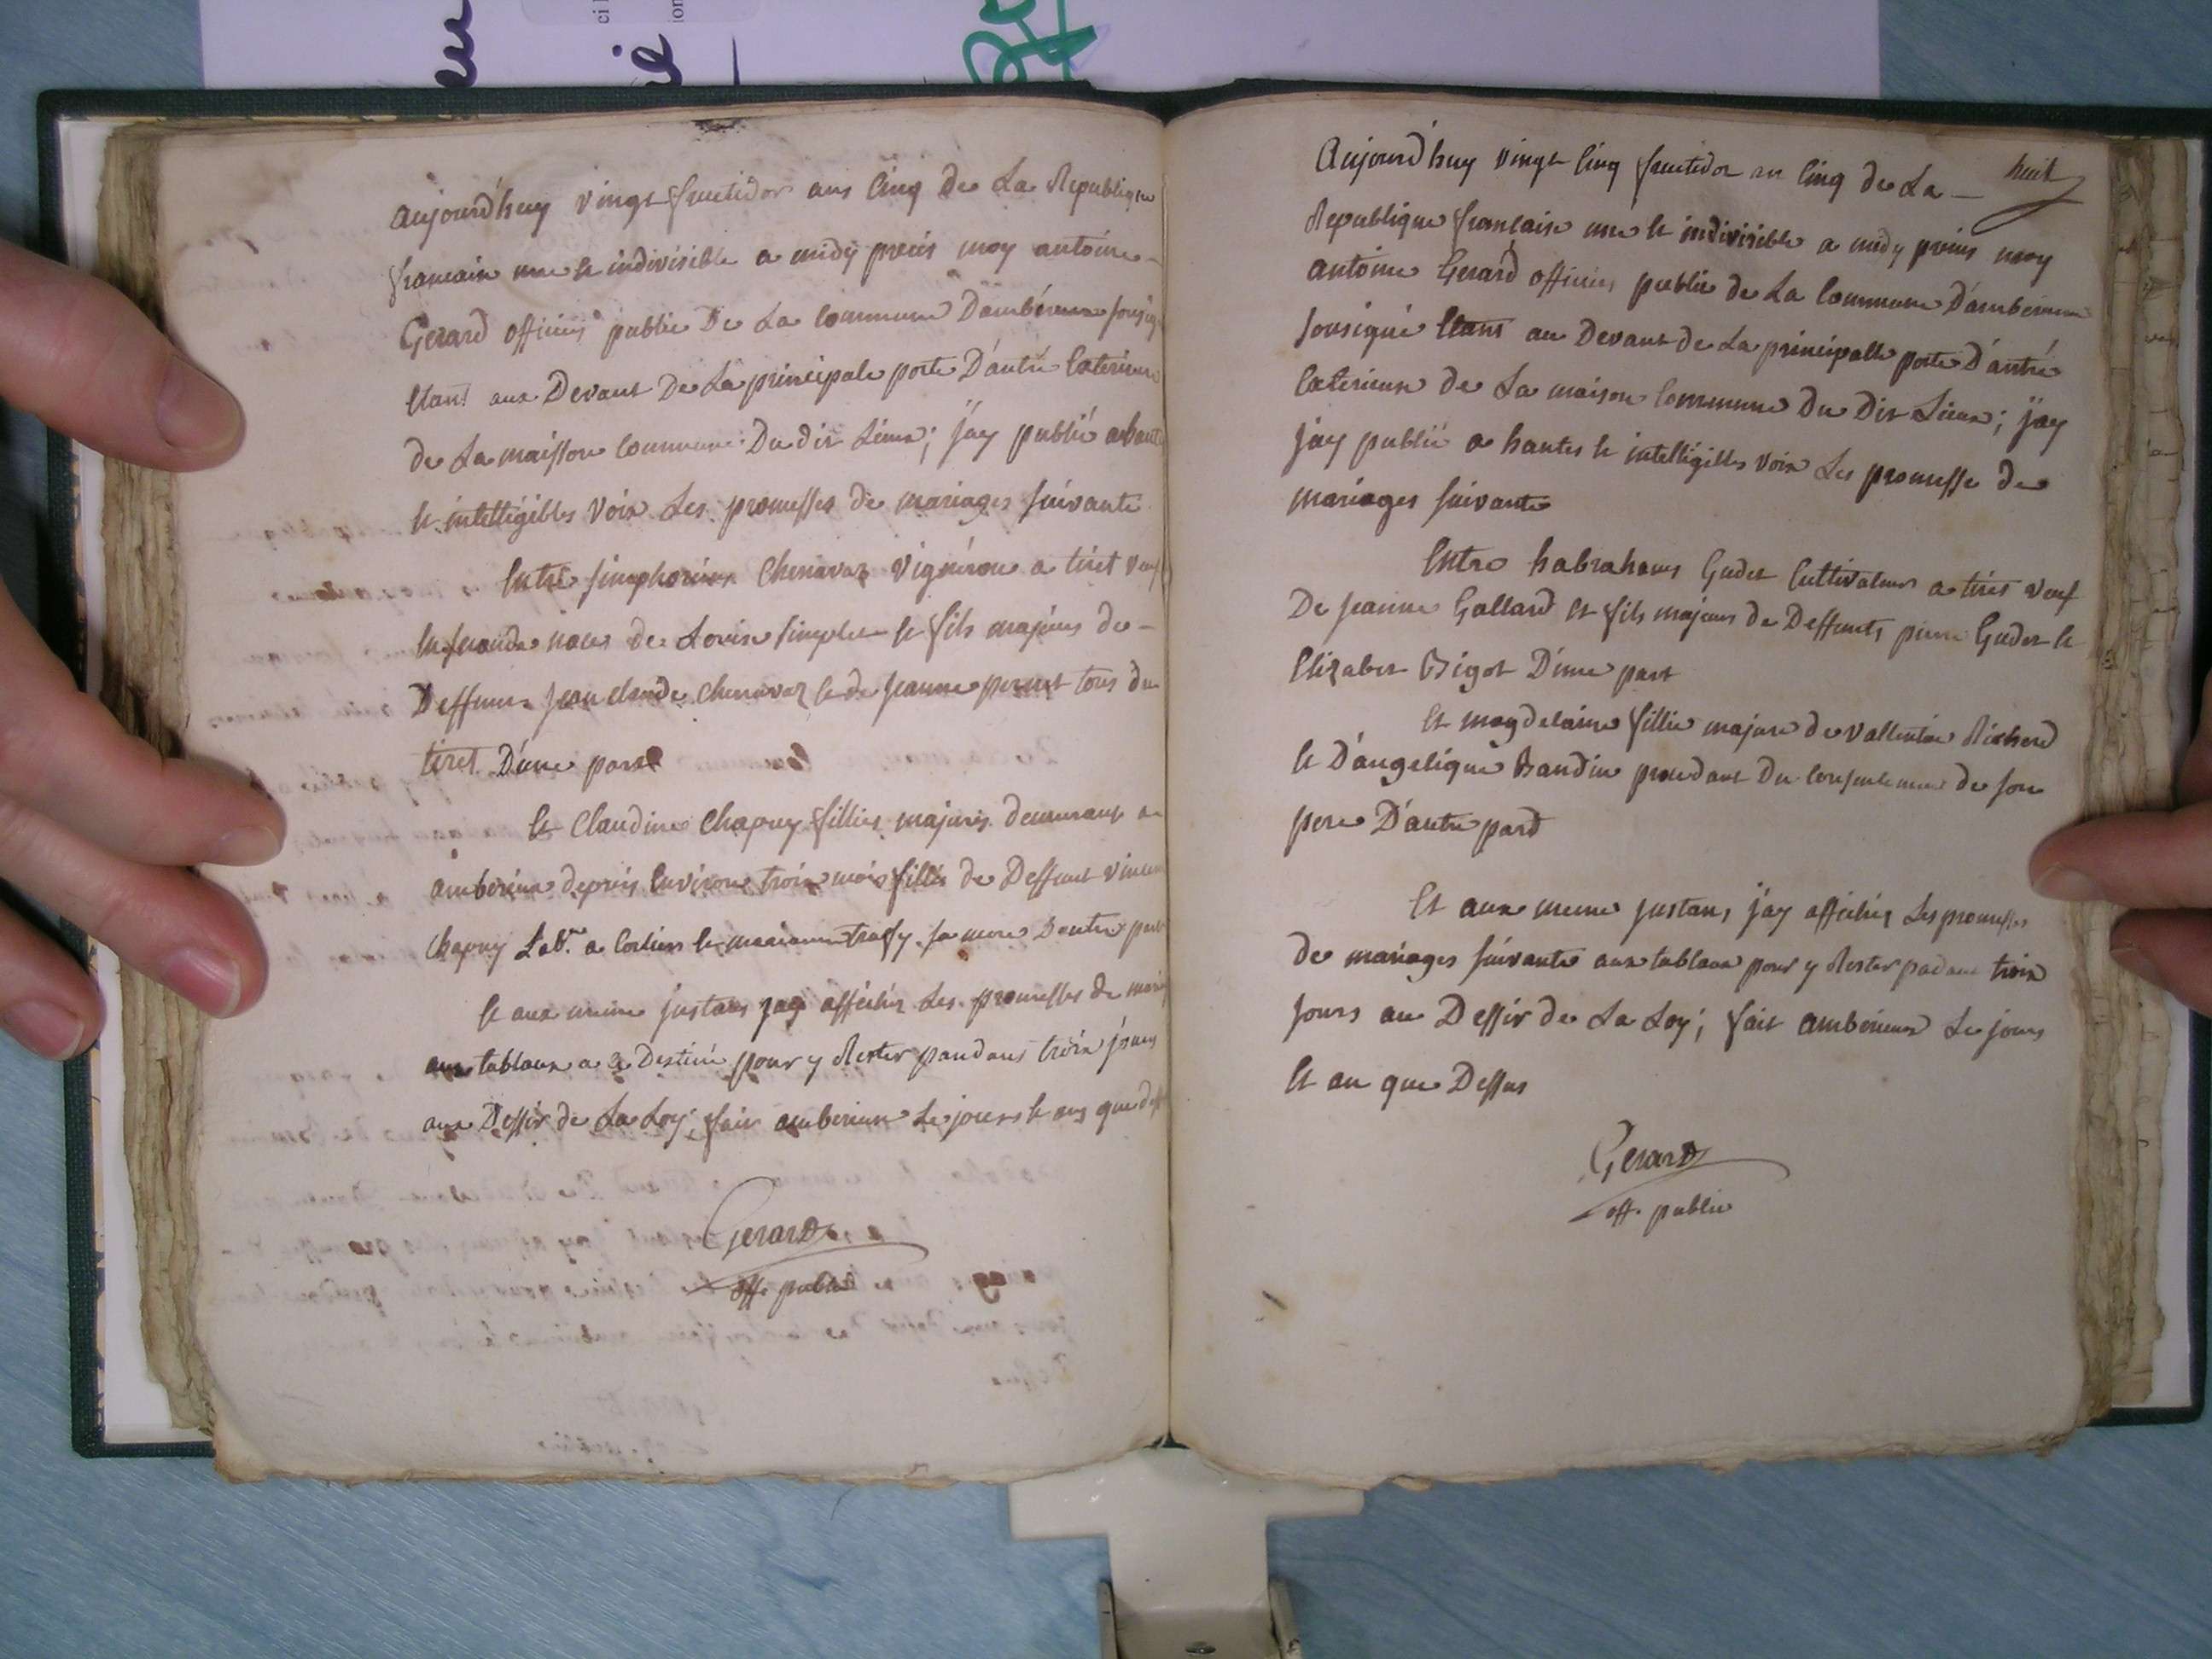 aujourd'huy vingt fructidor ans cinq de La Republique
francaise une et indivisible a midy precis moy antoine
Gerard officier public De La commune D'ambérieux sousig
Etant aux Devant De La principale porte D'antré Exterieur
de La maisson commune Du dit Lieux; j'ay publié a haute
et intelligibles voix Les promesses de mariages suivante
Entre simphorien Chenavaz vignérons a tiret veuf
En seconde noces de Louise simplet et fils majeurs de
Deffunt Jean claude Chenavaz et de Jeanne pernet tous du
tiret D'une part
Et Claudine Chapuy fillies majures demeurant a
amberieux depuis Environs trois mois fillies de Deffunt vincent
Chapuy Lab.r a et sa mere D'autre part
Et aux meme justans jay affichés Les promesses de mariag
aux tablaux a ce Destiné pour y Rester pandans trois jours
aux Dessir de La Loy; fait amberieux Le jours et ans que dess
Gerard
off. public
huit
Aujourd'huy vingt Cinq fructidor an cinq de La
Republique francaise une et indivisible a midy précis moy
antoine Gerard officier public de La Commune D'amberieux
sousigné Etant au Devant de La principalle porte D'antré
Exterieur de La maison Commune Du Dit Lieux; j'ay
j'ay publié a hautes et intelligibles voix Les promesse de
mariages suivante
Entre habrahams Gudet Cultivateurs a tiret veuf
De jeanne Gallard Et fils majeurs de Deffunts pierre Gudet et
Elizabet Bigot D'une part
Et magdelaine fillie majure de vallentin Richerd
et D'angelique Baudin procedant Du Consentement de son
pere D'autre pard
Et aux meme justans j'ay affichés Les promesses
de mariages suivante aux tablaux pour y Rester padant trois
Jours au Dessir de La Loy; fait amberieux Le jours
Et an que Dessus
Gerard
off. public